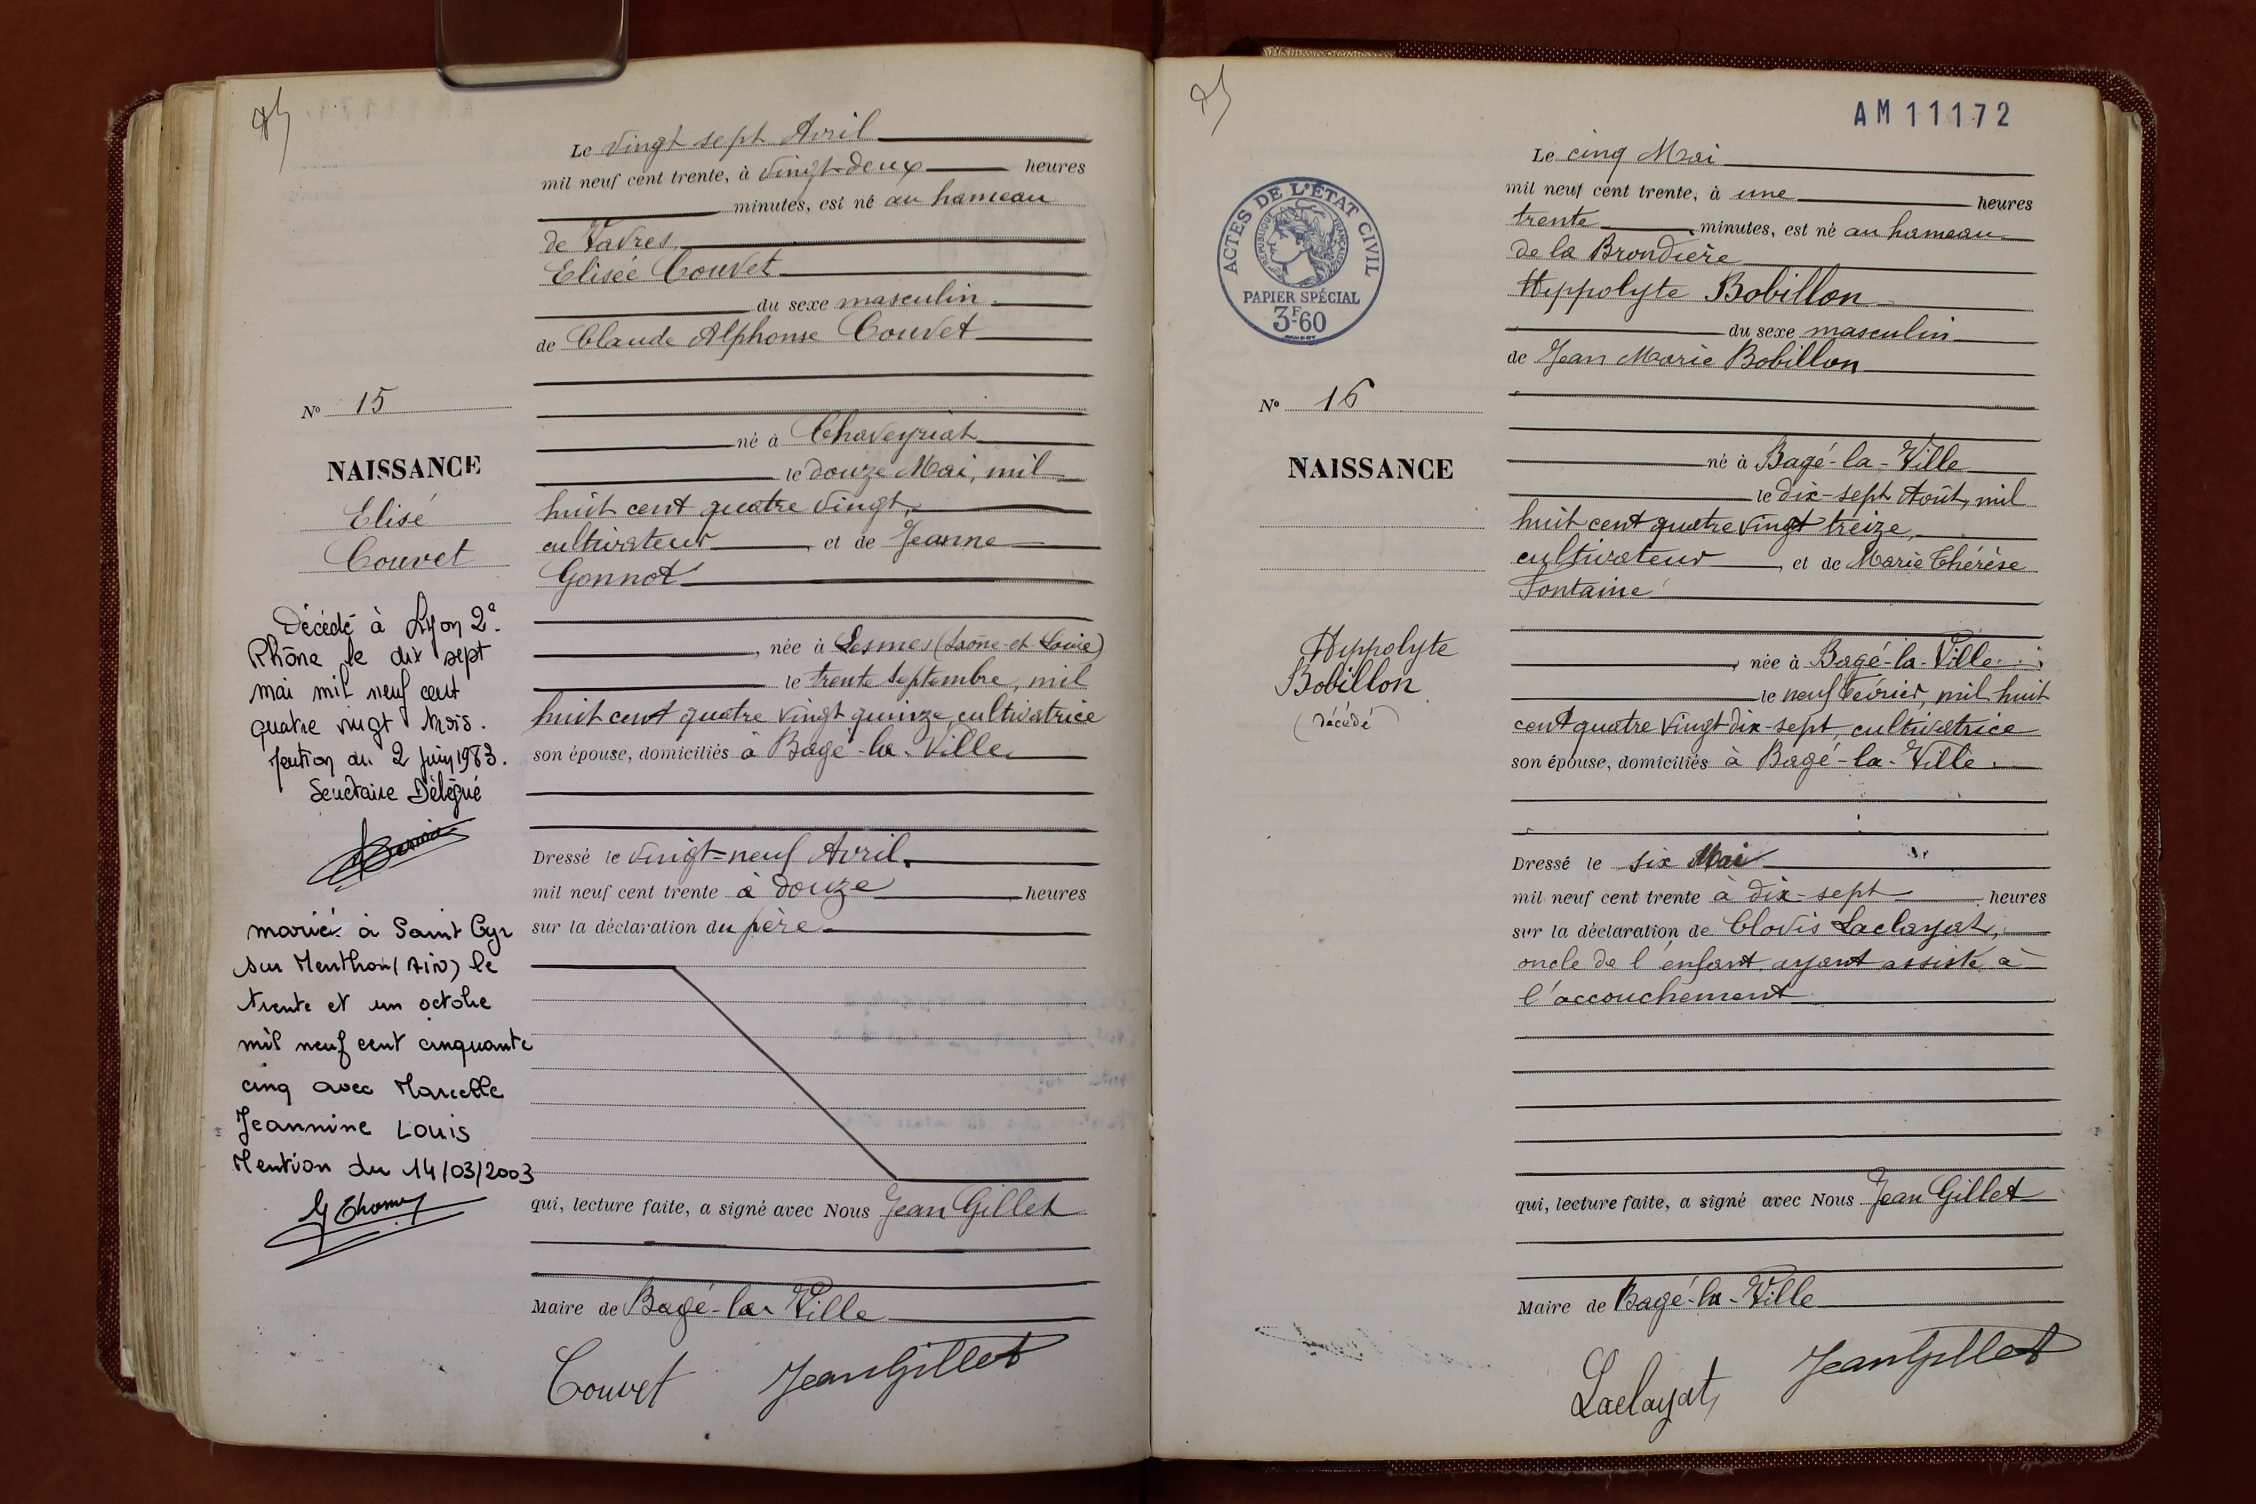 Le vingt sept Avril
mil neuf cent trente, à vingt-deux heures
minutes, est né au hameau
de Vavres,
Elisée Couvet
du sexe masculin
de Claude Alphonse Couvet
né à Chaveyriat
le douze Mai, mil
huit cent quatre vingt,
cultivateur, et de Jeanne
Gonnot
, née à Lesmes (Saône-et-Loire)
le trente septembre, mil
huit cent quatre vingt quinze, cultivatrice
son épouse, domiciliés à Bagé-la-Ville.
Dressé le vingt-neuf Avril,
mil neuf cent trente à douze heures
sur la déclaration du père
qui, lecture faite, a signé avec Nous Jean Gillet
Maire de Bagé-la-Ville
Couvet JeanGillet
No 15
NAISSANCE
Elisé
Couvet
Décédé à Lyon 2e.
Rhône le dix sept
mai mil neuf cent
quatre vingt trois.
Mention du 2 juin 1983.
Secrétaire Délégué
marié à Saint Cyr
sur Menthon (Ain) le
trente et un octobre
mil neuf cent cinquante
cinq avec Marcelle
Jeannine LOUIS
Mention du 14/03/2003
AM11172
ACTES DE L'ÉTAT CIVIL
RÉPUBLIQUE FRANÇAISE
PAPIER SPÉCIAL
3F60
No 16
NAISSANCE
Hippolyte
Bobillon
(décédé)
Le cinq Mai
mil neuf cent trente, à une heures
trente minutes, est né au hameau
de la Brondière
Hippolyte Bobillon
du sexe masculin
de Jean Marie Bobillon
né à Bagé-la-Ville
le dix-sept Août, mil
huit cent quatre vingt treize,
cultivateur, et de Marie Thérèse
Fontaine
, née à Bagé-la-Ville
le neuf Février, mil huit
cent quatre vingt dix-sept, cultivatrice
son épouse, domiciliés à Bagé-la-Ville.
Dressé le six Mai
mil neuf cent trente à dix-sept heures
sur la déclaration de Clovis Laclayat,
oncle de l'enfant, ayant assisté à
l'accouchement
qui, lecture faite, a signé avec Nous Jean Gillet
Maire de Bagé-la-Ville
Laclayat JeanGillet